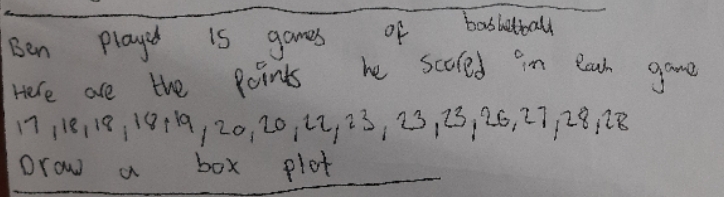 Ben played 15 games of basketball
Here are the points he scored in each game
17, 18, 18, 18, 19, 20, 20, 22, 23, 23, 23, 26, 27, 28, 28
Draw a box plot